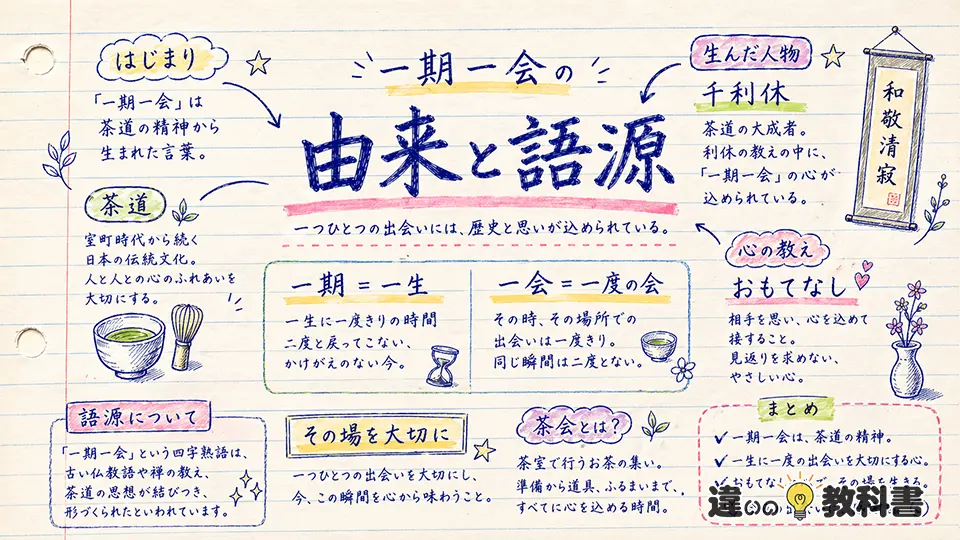 はじまり
「一期一会」は
茶道の精神から
生まれた言葉。
一期一会の
由来と語源
一つひとつの出会いには、歴史と思いが込められている。
生んだ人物
千利休
茶道の大成者。
利休の教えの中に、
「一期一会」の心が
込められている。
和敬清寂
茶道
室町時代から続く
日本の伝統文化。
人と人との心のふれあいを
大切にする。
一期＝一生
一生に一度きりの時間
二度と戻ってこない、
かけがえのない今。
一会＝一度の会
その時、その場所での
出会いは一度きり。
同じ瞬間は二度とない。
心の教え
おもてなし
相手を思い、心を込めて
接すること。
見返りを求めない、
やさしい心。
語源について
「一期一会」という四字熟語は、
古い仏教語や禅の教え、
茶道の思想が結びつき、
形づくられたといわれています。
その場を大切に
一つひとつの出会いを大切にし、
今、この瞬間を心から味わうこと。
茶会とは？
茶室で行うお茶の集い。
準備から道具、ふるまいまで、
すべてに心を込める時間。
まとめ
✓ 一期一会は、茶道の精神。
✓ 一生に一度の出会いを大切にする心。
✓ おもてな その場を生きる。
違いの教科書